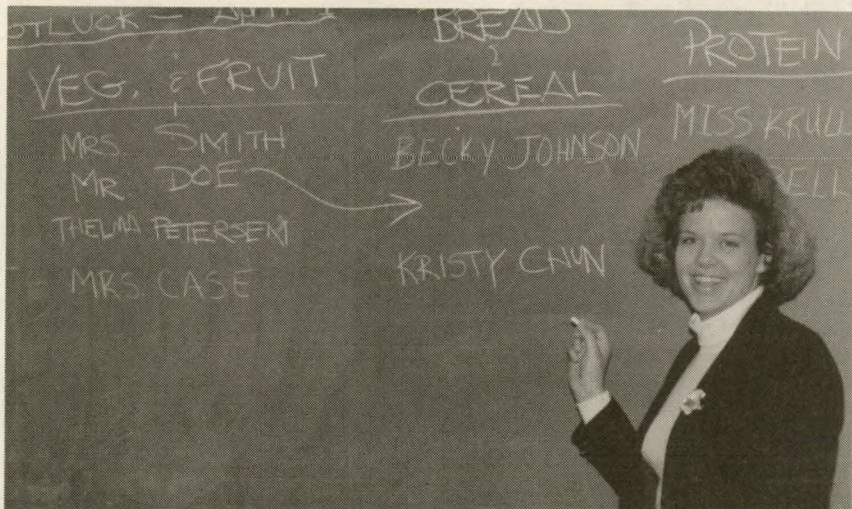 POTLUCK —
VEG. & FRUIT
MRS. SMITH
MR DOE
THELMA PETERSEN
MRS. CASE
BREAD
&
CEREAL
BECKY JOHNSON
KRISTY CHUN
PROTEIN
MISS KRULL
BELL